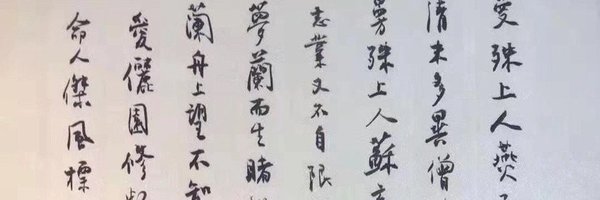 曼殊上人燕
清末多異僧
曼殊上人蘇
志業又不自限
夢蘭而生睹
蘭舟上望不知
愛儷園修
命人傑風標